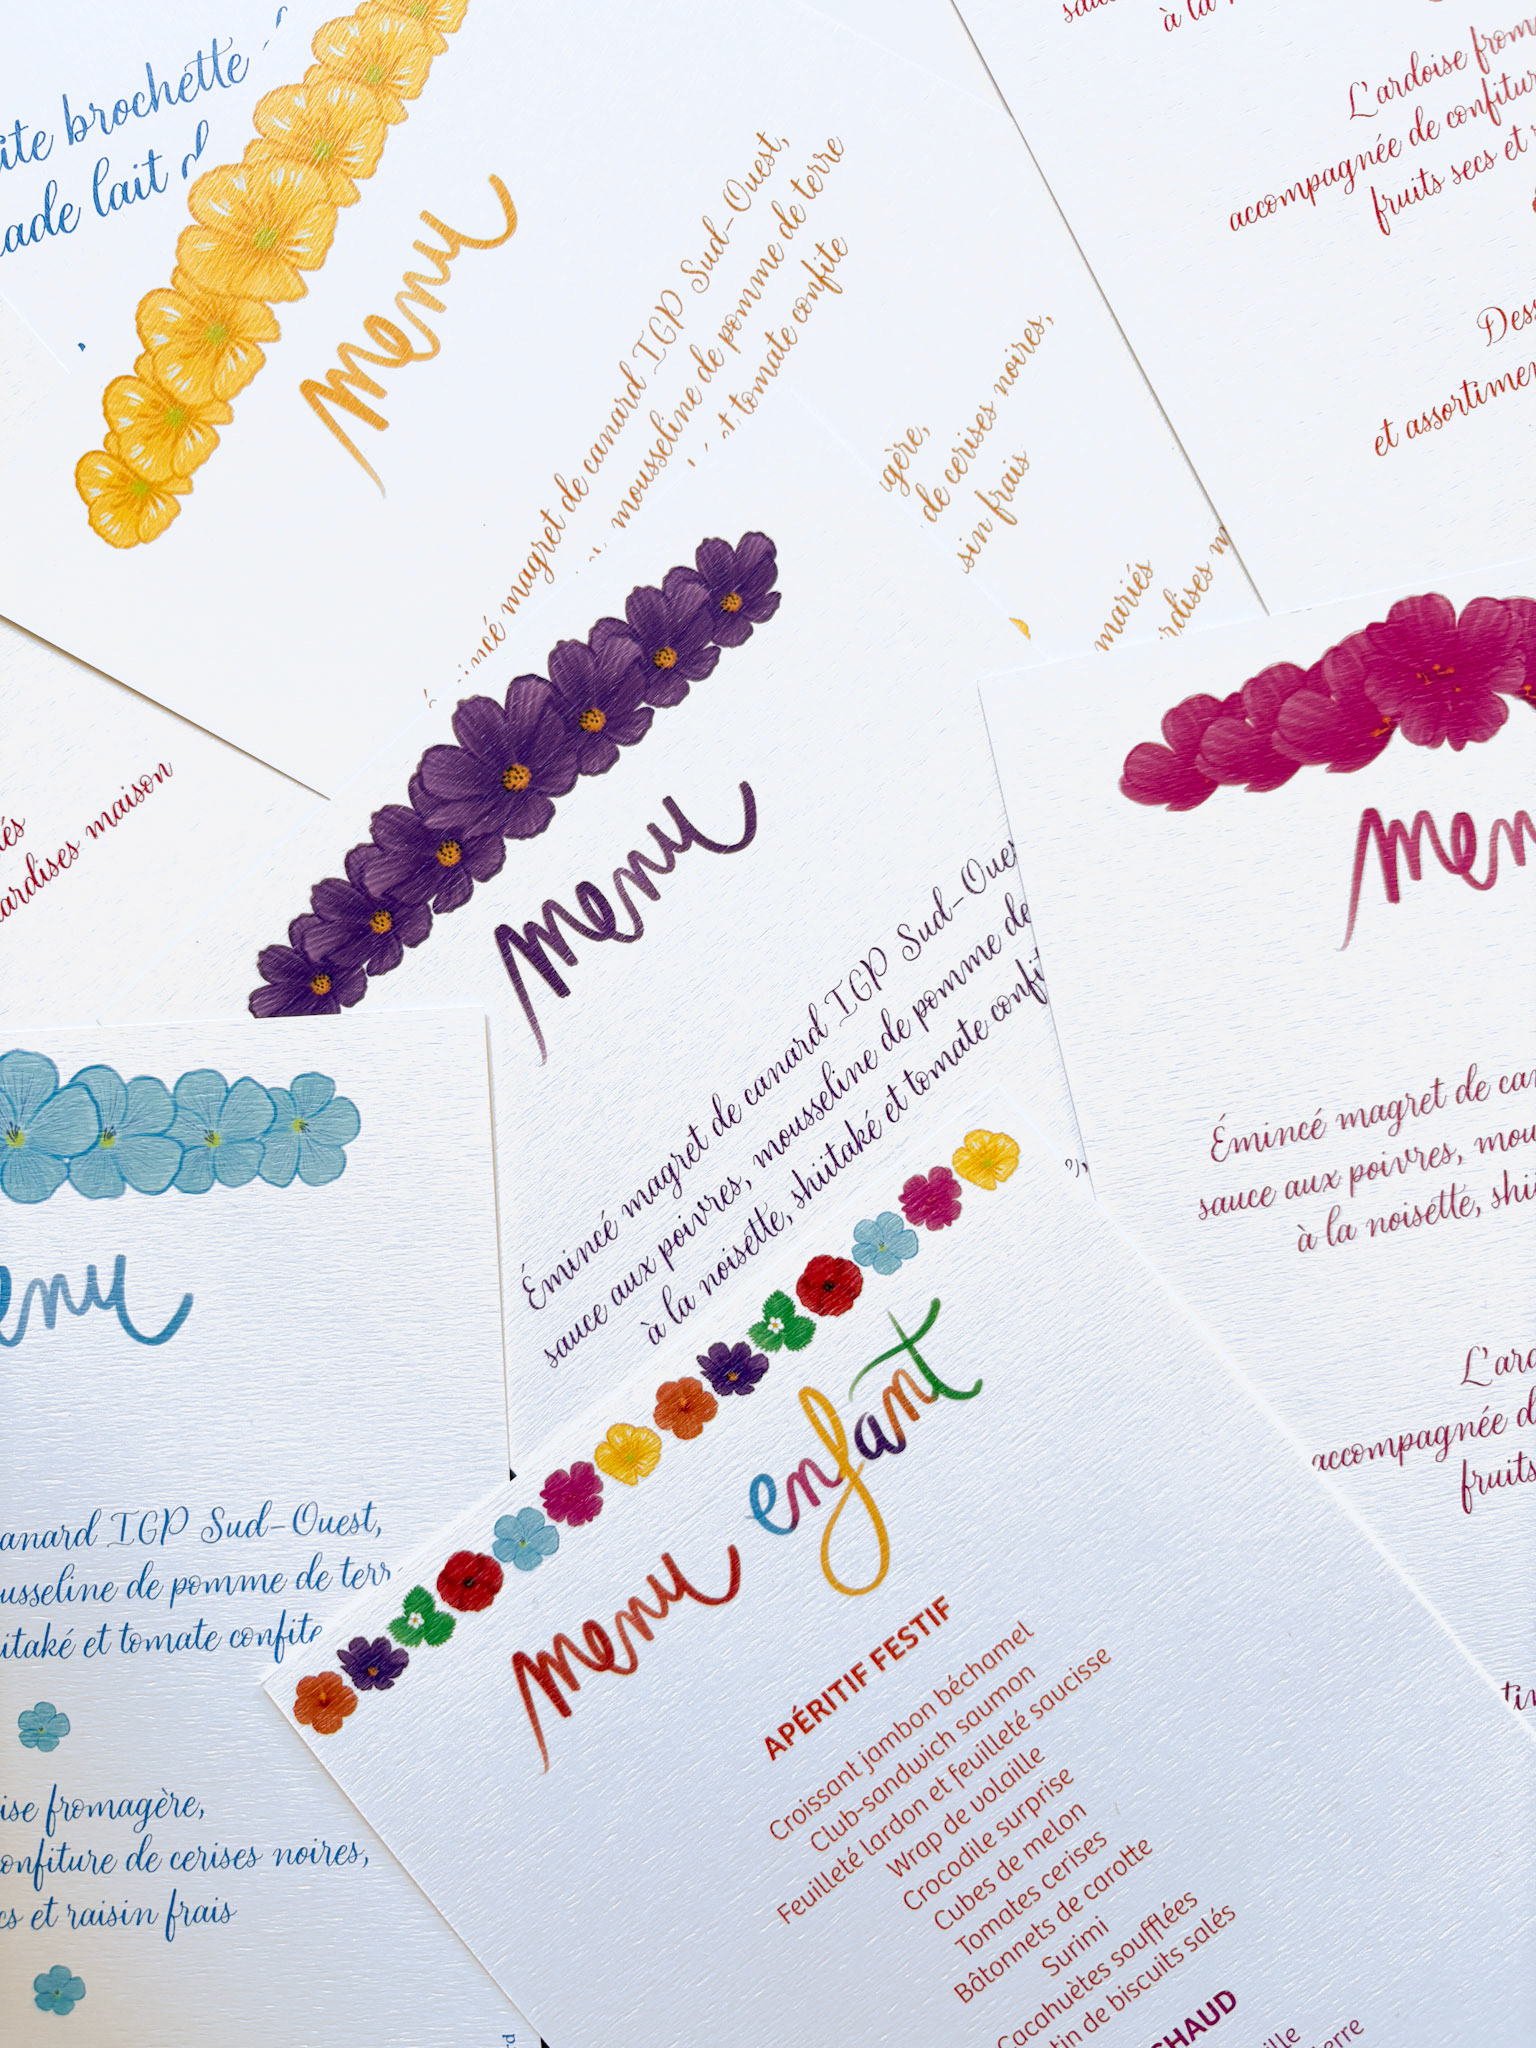 brochette
lait
menu
magret de canard IGP Sud-Ouest,
mousseline de pomme de terre
et tomate confite
de cerises noires,
frais
mariés
L'ardoise
accompagnée de
fruits secs et
et
maison
menu
Émincé magret de canard IGP Sud-
sauce aux poivres, mousseline de pomme de
à la noisette, shiitaké et tomate
Émincé magret de
sauce aux poivres,
à la noisette,
accompagnée
fruits
IGP Sud-Ouest,
de pomme de
et tomate confite
fromagère,
de cerises noires,
et raisin frais
menu enfant
APÉRITIF FESTIF
Croissant jambon béchamel
Club-sandwich saumon
Feuilleté lardon et feuilleté saucisse
Wrap de volaille
Crocodile surprise
Cubes de melon
Tomates cerises
Bâtonnets de carotte
Surimi
Cacahuètes soufflées
de biscuits salés
CHAUD